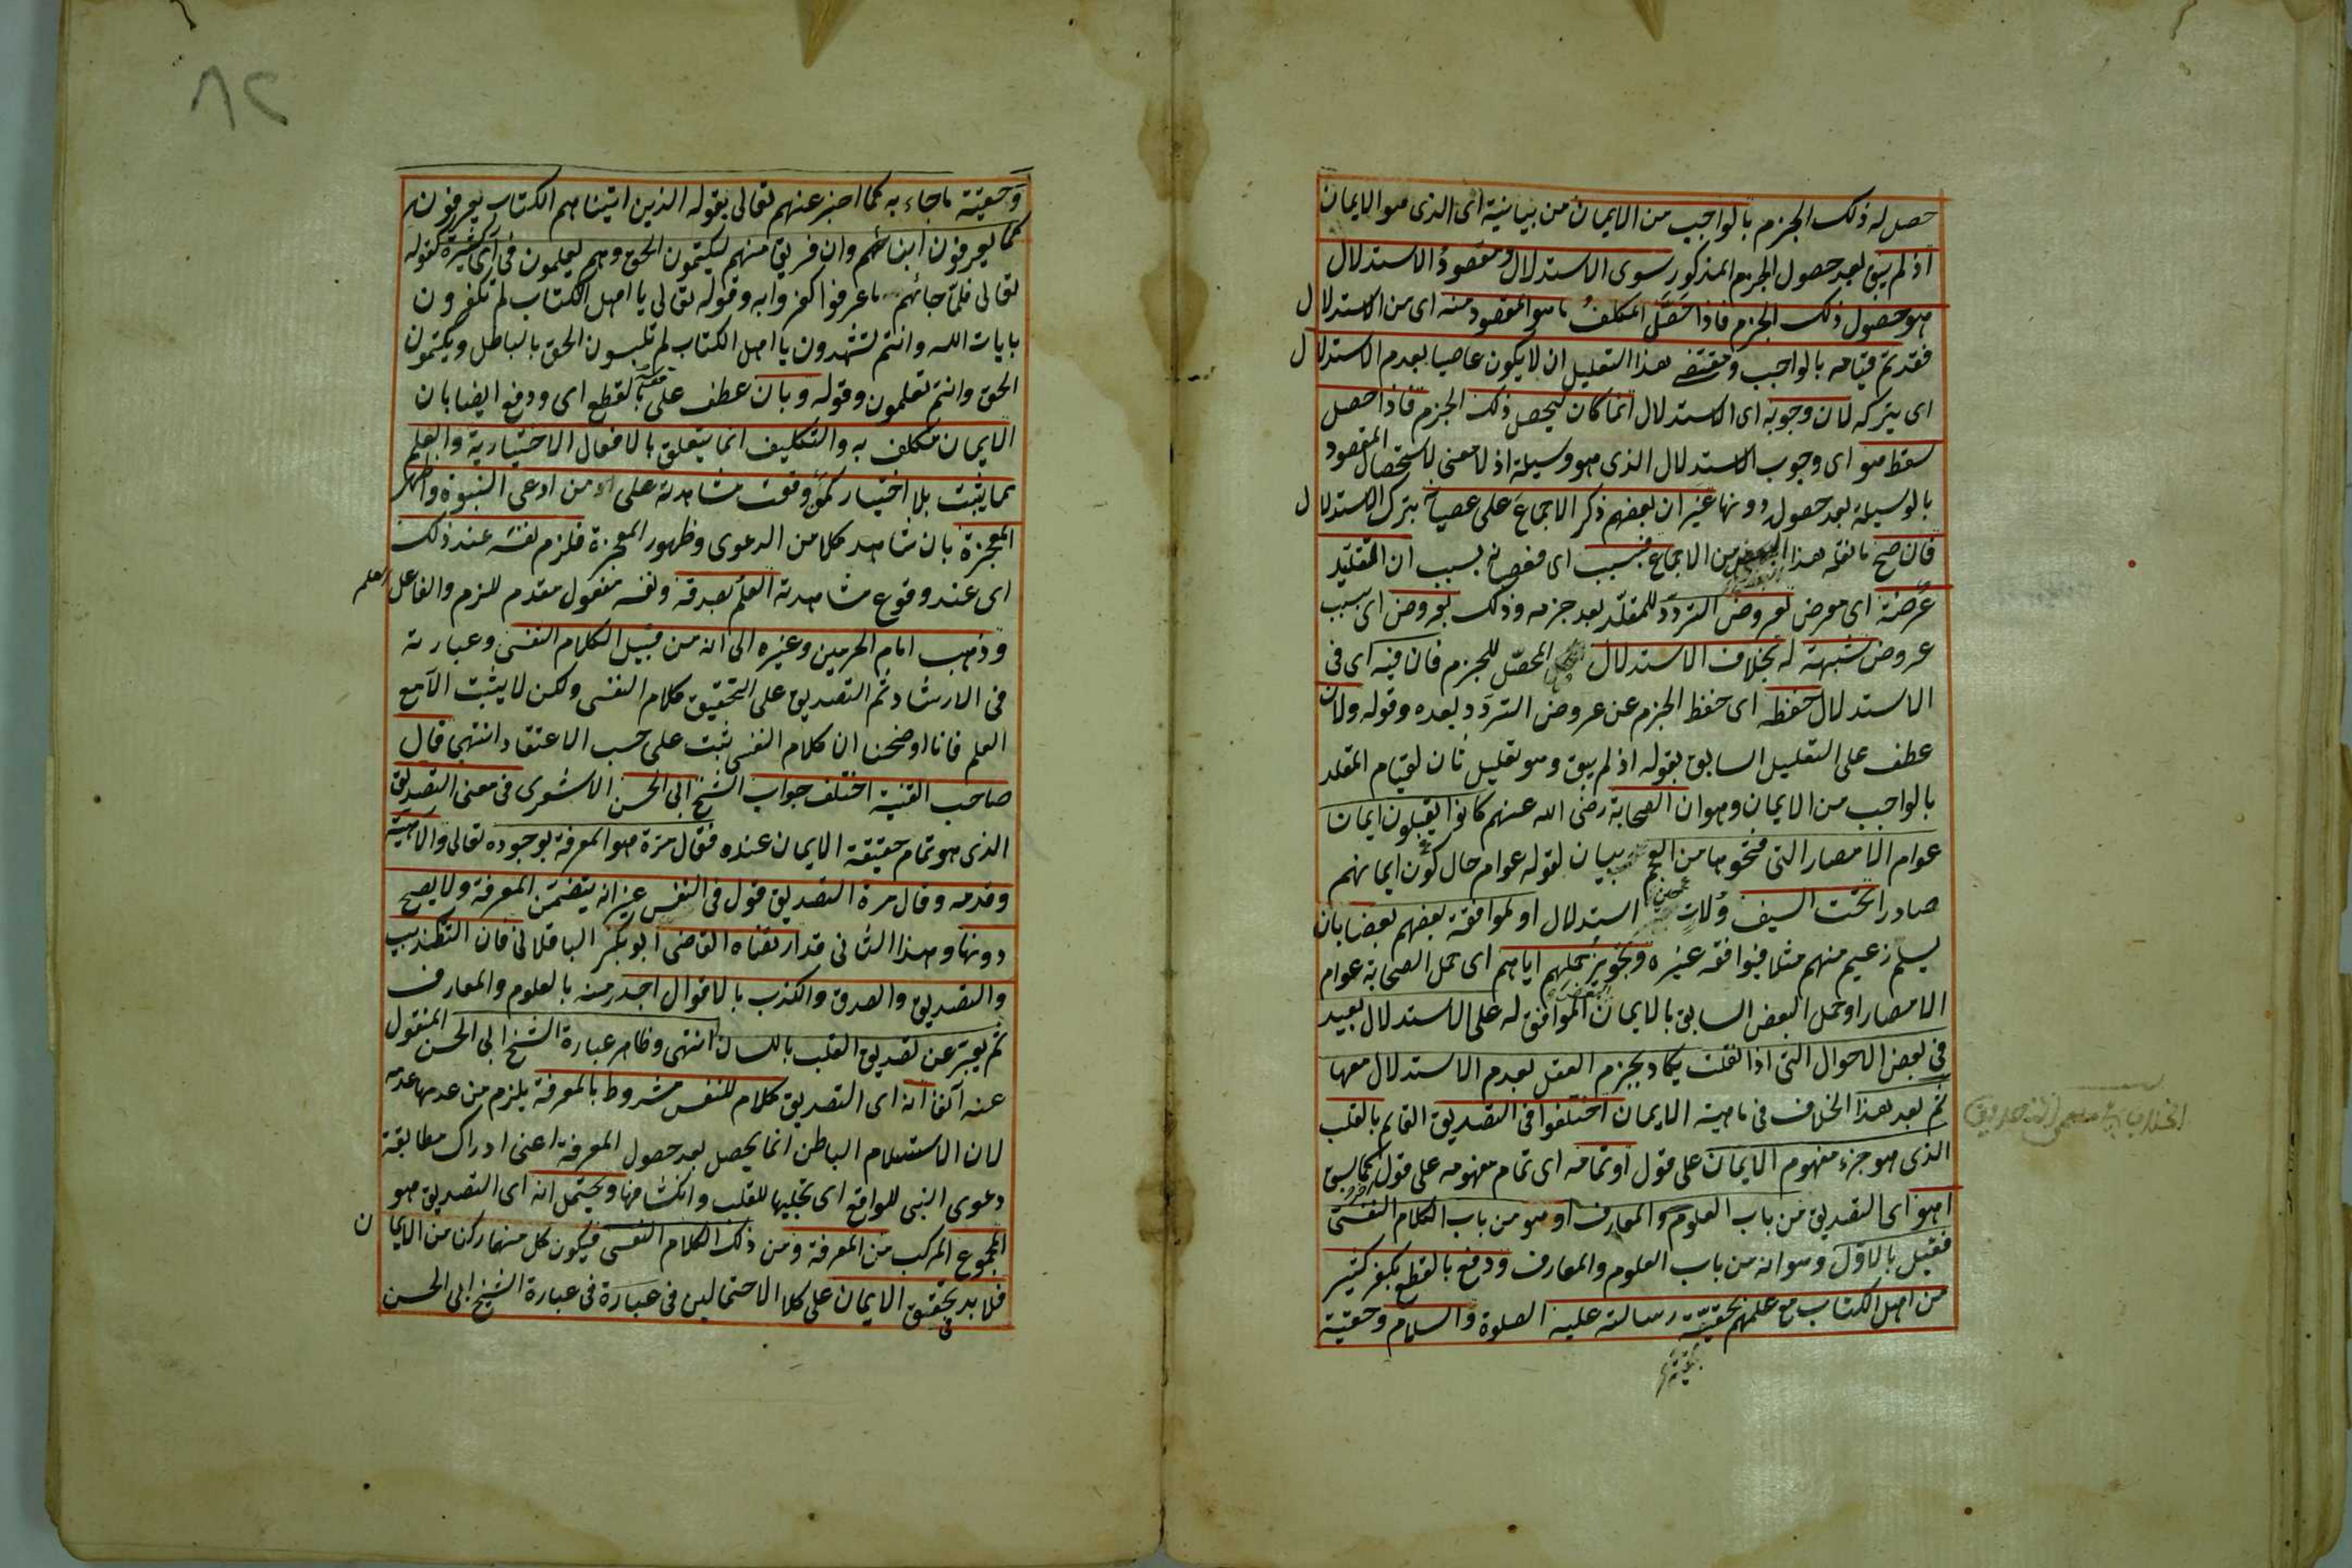 حصل له ذلك الجزم بالواجب من الايمان من بيانية اى الذى هو الايمان
اذ لم يبق بعد حصول الجزم المذكور سوى الاستدلال ومقصود الاستدلال
هو حصول ذلك الجزم فاذا حصل المكلف ما هو المقصود منه اى من الاستدلال
فقد تم قيامه بالواجب ومقتضى هذا التعليل ان لا يكون عاصيا بعدم الاستدلال
اى بتركه لان وجوبه اى الاستدلال انما كان ليحصل ذلك الجزم فاذا حصل
سقط هو اى وجوب الاستدلال الذى هو وسيلة اذ لا معنى لاستحصال المقصود
بالوسيلة بعد حصوله دونها غير ان بعضهم ذكر الاجماع على عصيانه بترك الاستدلال
فان صح ما نقله هذا البعض من الاجماع فبسبب اى فعصيانه بسبب ان التقليد
عرضة اى معرض لعروض التردد للمقلد بعد جزمه وذلك بعروض اى بسبب
عروض شبهة له بخلاف الاستدلال المحصل للجزم فان فيه اى فى
الاستدلال حفظه اى حفظ الجزم عن عروض التردد بعده وقوله ولان
عطف على التعليل السابق بقوله اذ لم يبق وهو تعليل ثان لقيام المقلد
بالواجب من الايمان وهو ان الصحابة رضى الله عنهم كانوا يقبلون ايمان
عوام الامصار التى فتحوها من العجم بيان لقوله عوام حال كون ايمانهم
صادرا تحت السيف ولات حين استدلال او لموافقة بعضهم بعضا بان
يسلم زعيم منهم مثلا فيوافقه غيره وتجويز حملهم اياهم اى حمل الصحابة عوام
الامصار او حمل البعض السابق بالايمان البعض الموافق له على الاستدلال بعيد
فى بعض الاحوال التى اذا نقلت يكاد يجزم العقل بعدم الاستدلال معها
ثم بعد هذا الخلاف فى ماهية الايمان اختلفوا فى التصديق القايم بالقلب
الذى هو جزء مفهوم الايمان على قول او تمامه اى تمام مفهومه على قول كما سبق
اهو اى التصديق من باب العلوم والمعارف او هو من باب الكلام النفسى
فقيل بالاول وهو انه من باب العلوم والمعارف ودفع بالقطع بكفر كثير
من اهل الكتاب مع علمهم بحقية رسالته عليه الصلوة والسلام وحقية
وحقية ما جاء به كما اخبر عنهم تعالى بقوله الذين اتيناهم الكتاب يعرفونه
كما يعرفون ابنائهم وان فريق منهم ليكتمون الحق وهم يعلمون فى آى كثيرة كقوله
تعالى فلما جائهم ما عرفوا كفروا به وقوله تعالى يا اهل الكتاب لم تكفرون
بايات الله وانتم تشهدون يا اهل الكتاب لم تلبسون الحق بالباطل وتكتمون
الحق وانتم تعلمون وقوله وبان عطف على بالقطع اى ودفع ايضا بان
الايمان مكلف به والتكليف انما يتعلق بالافعال الاختيارية والعلم
مما يثبت بلا اختيار كمن وقعت مشاهدته على من ادعى النبوة واظهر
المعجزة بان شاهد كلا من الدعوى وظهور المعجزة فلزم نفسه عند ذلك
اى عند وقوع مشاهدته العلم بصدقه ونفسه مفعول مقدم للزم والفاعل العلم
وذهب امام الحرمين وغيره الى انه من قبيل الكلام النفسى وعبارته
فى الارشاد ثم التصديق على التحقيق كلام النفس ولكن لا يثبت الا مع
العلم فانا اوضحنا ان كلام النفس يثبت على حسب الاعتقاد انتهى قال
صاحب الغنية اختلف جواب الشيخ ابى الحسن الاشعرى فى معنى التصديق
الذى هو تمام حقيقة الايمان عنده فقال مرة هو المعرفة بوجوده تعالى والاهيته
وقدمه وقال مرة التصديق قول فى النفس غير انه يتضمن المعرفة ولا يصح
دونها وهذا الثانى قد ارتضاه القاضى ابو بكر الباقلانى فان التكذيب
والتصديق والصدق والكذب بالاقوال اجدر منه بالعلوم والمعارف
ثم يعبر عن تصديق القلب باللسان انتهى وظاهر عبارة الشيخ ابى الحسن المنقول
عنه آنفا انه اى التصديق كلام للنفس مشروط بالمعرفة يلزم من عدمها عدمه
لان الاستسلام الباطن انما يحصل بعد حصول المعرفة اعنى ادراك مطابقة
دعوى النبى للواقع اى تجليها للقلب وانكشافها ويحتمل انه اى التصديق هو
المجموع المركب من المعرفة ومن ذلك الكلام النفسى فيكون كل منهما ركنا من الايمان
فلا بد فى تحقيق الايمان على كلا الاحتمالين فى عبارة فى عبارة الشيخ ابى الحسن
٨٢